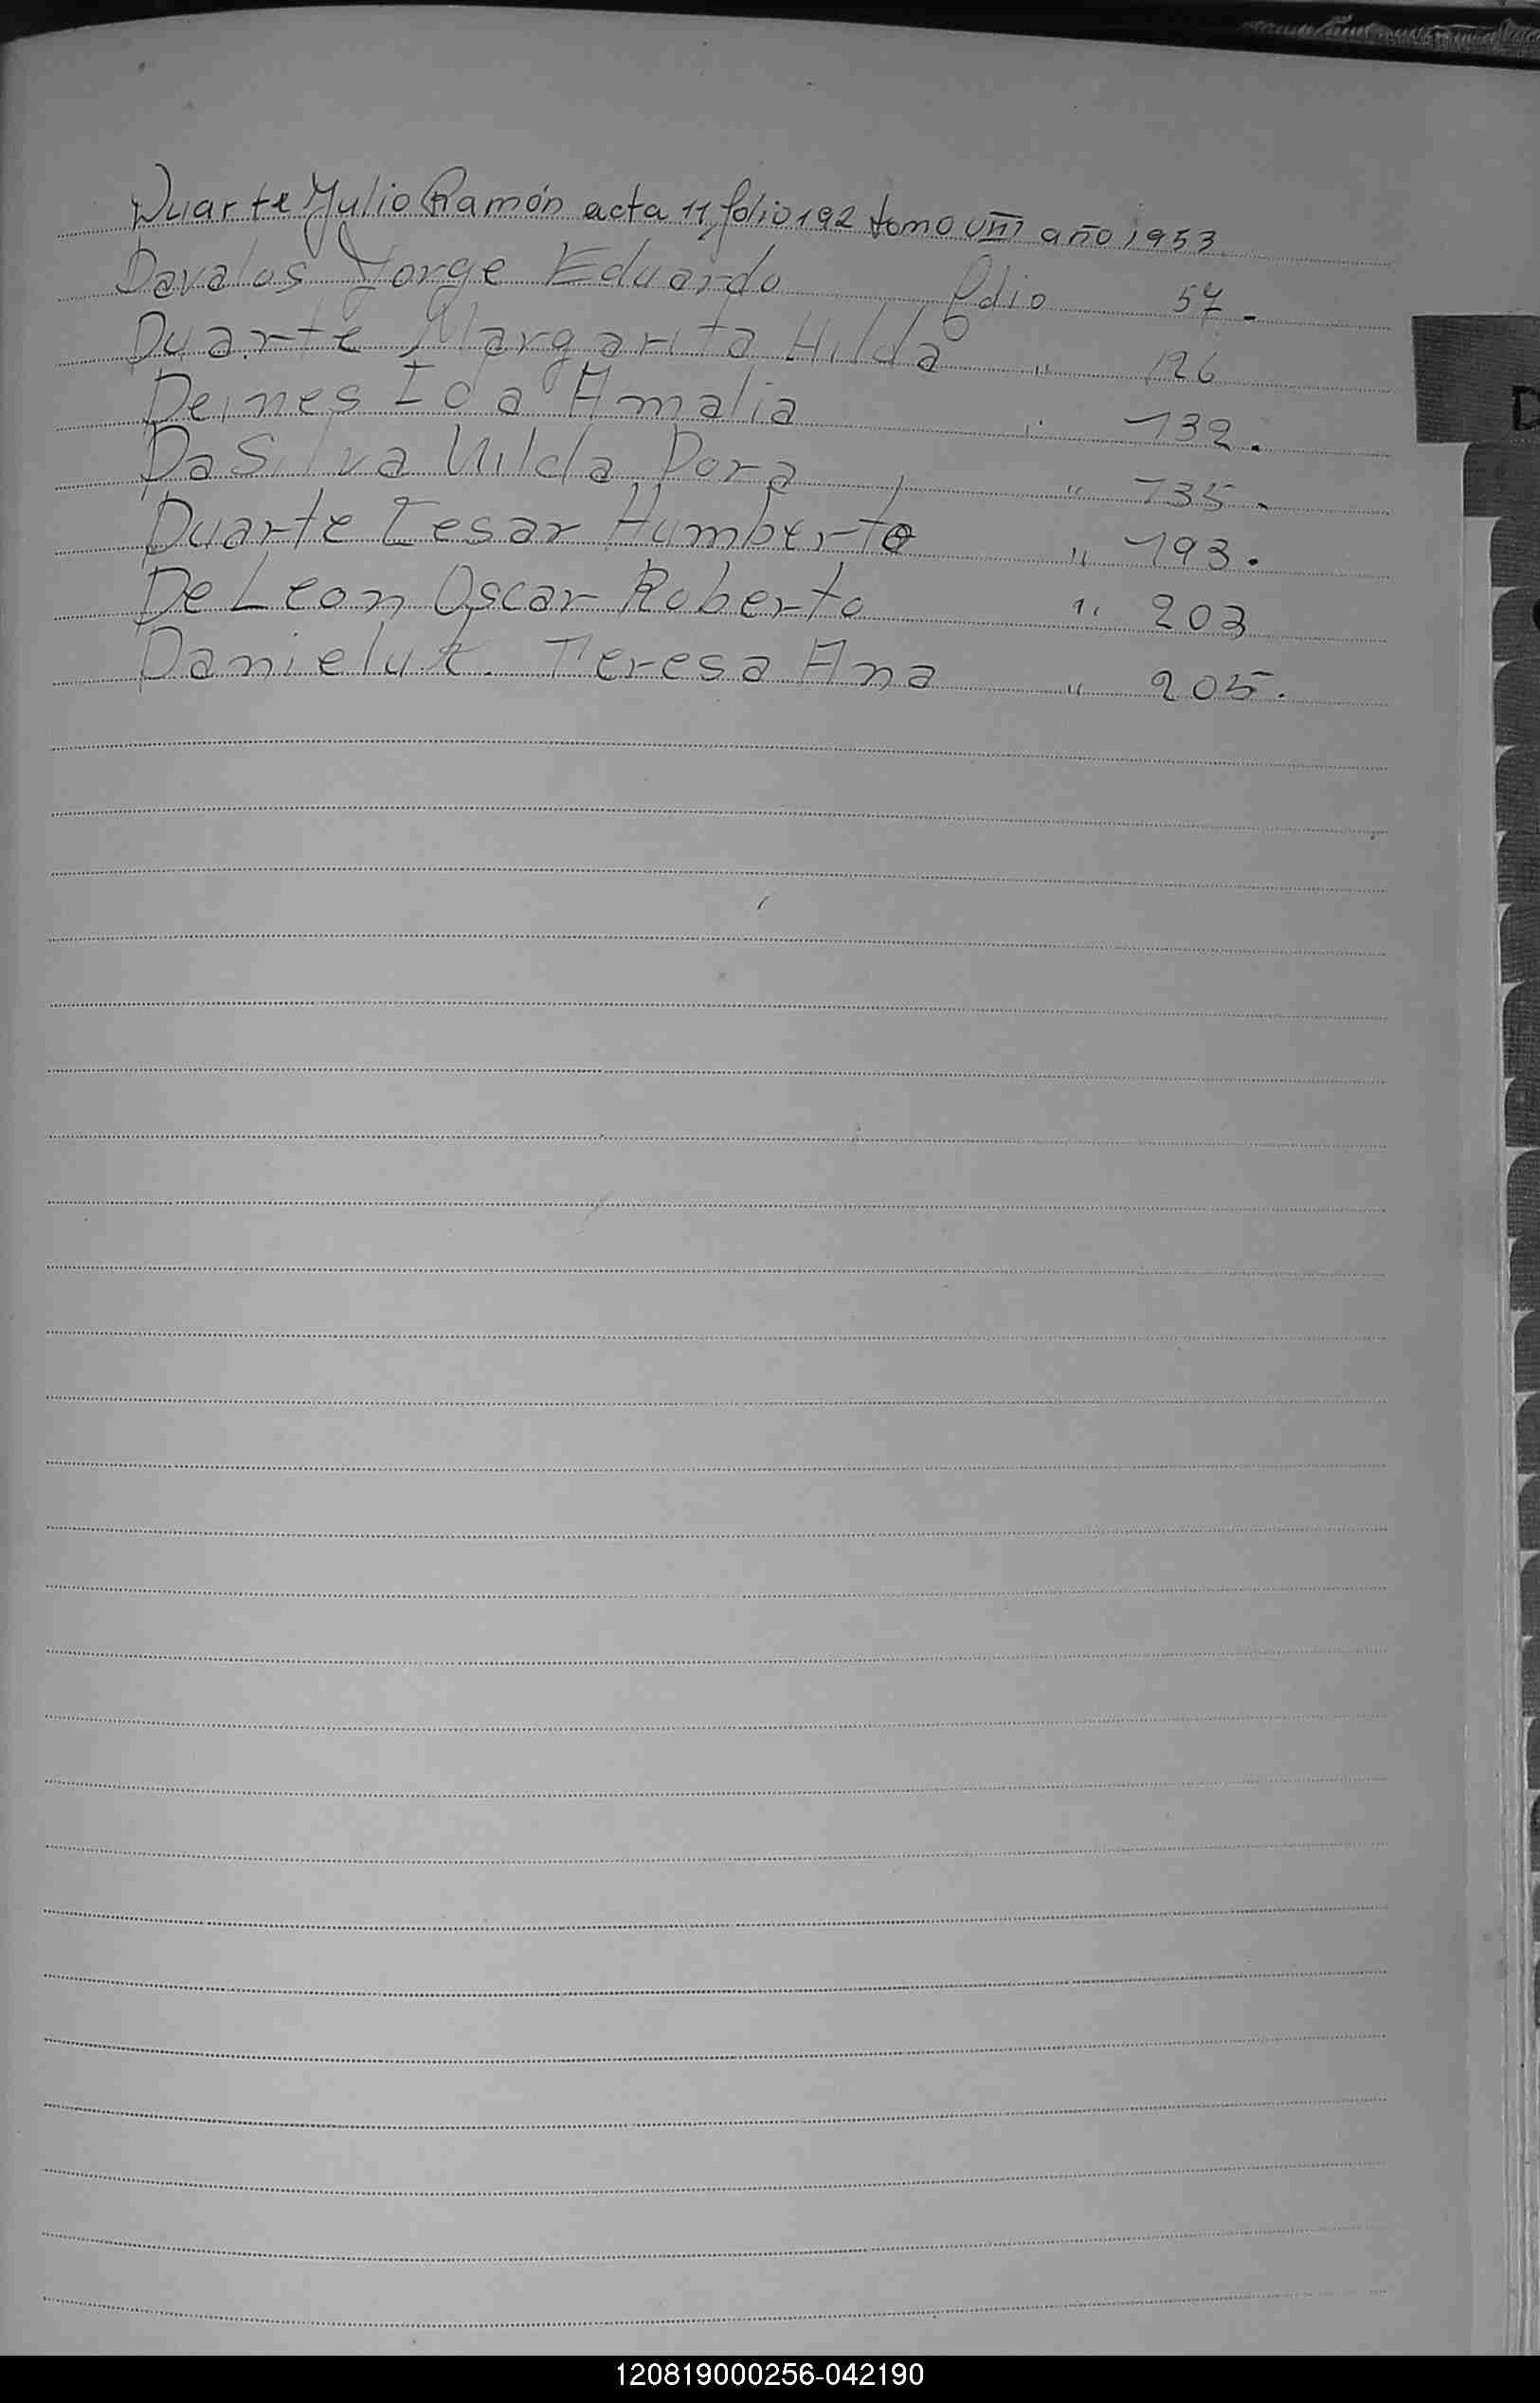 Duarte Julio Ramón acta 11 folio 192 tomo VIII año 1953
Davalos Jorge Eduardo folio 57.
Duarte Margarita Hilda " 126
Deines Ida Amalia " 132.
Da Silva Nilda Dora " 135.
Duarte Cesar Humberto " 193.
De Leon Oscar Roberto " 203
Danielut. Teresa Ana " 205.
D
120819000256-042190